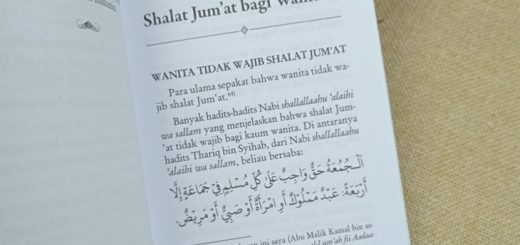 Shalat Jum'at bagi Wani
WANITA TIDAK WAJIB SHALAT JUM'AT
Para ulama sepakat bahwa wanita tidak wa-
jib shalat Jum'at.⁶⁴⁾
Banyak hadits-hadits Nabi shallallaahu 'alaihi
wa sallam yang menjelaskan bahwa shalat Jum-
'at tidak wajib bagi kaum wanita. Di antaranya
hadits Thariq bin Syihab, dari Nabi shallallaahu
'alaihi wa sallam, beliau bersaba:
الْجُمُعَةُ حَقٌّ وَاجِبٌ عَلَى كُلِّ مُسْلِمٍ فِي جَمَاعَةٍ إِلَّا
أَرْبَعَةً: عَبْدٌ مَمْلُوْكٌ أَوِ امْرَأَةٌ أَوْ صَبِيٌّ أَوْ مَرِيْضٌ.
an ini saya (Abu Malik Kamal bin as-
fii Aadaa-